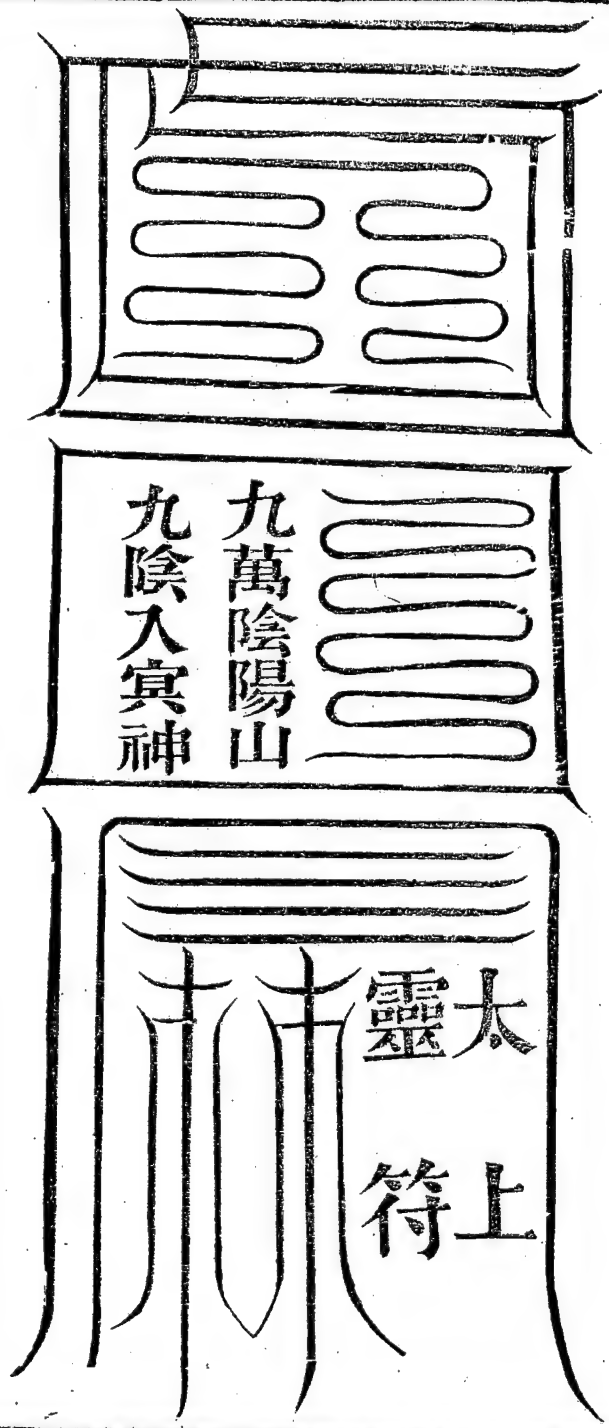 九萬陰陽山
九陰入寅神
太上
靈符